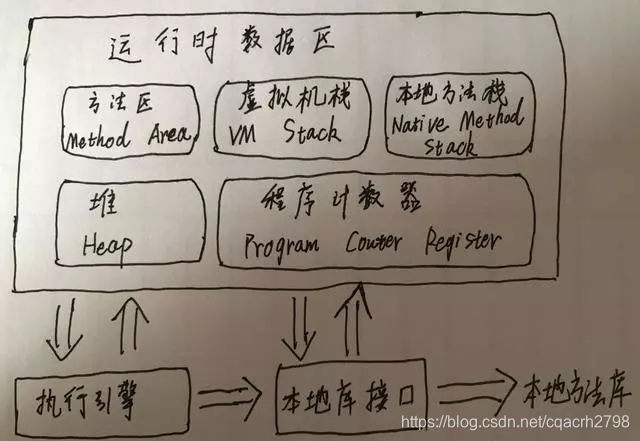 运行时数据区
方法区
Method Area
虚拟机栈
VM Stack
本地方法栈
Native Method
Stack
堆
Heap
程序计数器
Program Couter Register
执行引擎
本地库接口
本地方法库
https://blog.csdn.net/cqacrh2798